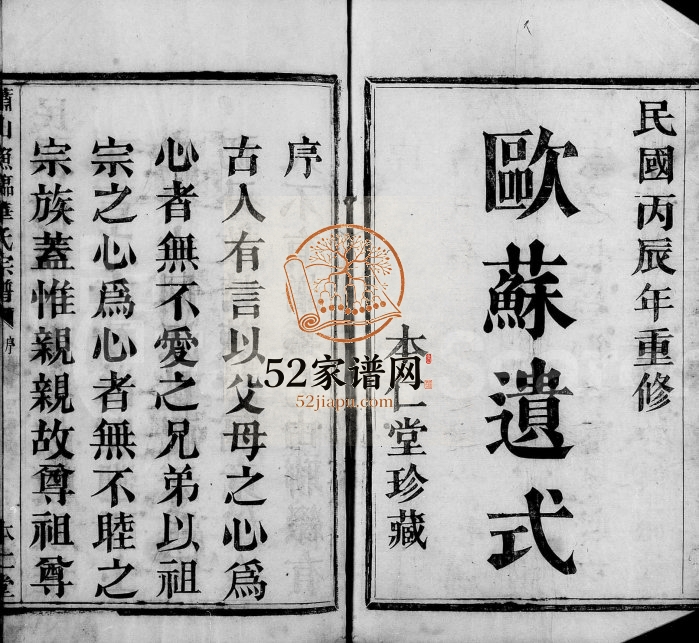 民國丙辰年重修
歐蘇遺式
本仁堂珍藏
序
古人有言以父母之心爲
心者無不愛之兄弟以祖
宗之心爲心者無不睦之
宗族蓋惟親親故尊祖尊
蕭山漁臨華氏宗譜 序 本仁堂
52家谱网
52jiapu.com